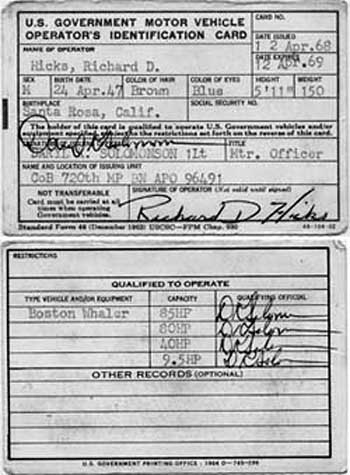 U.S. GOVERNMENT MOTOR VEHICLE
OPERATOR'S IDENTIFICATION CARD
CARD NO.
NAME OF OPERATOR
Hicks, Richard D.
DATE ISSUED
12 Apr.68
DATE EXPIRES
12 Apr.69
SEX DATE OF BIRTH COLOR OF HAIR COLOR OF EYES HEIGHT WEIGHT
M 24 Apr.47 Brown Blue 5'11" 150
BIRTHPLACE SOCIAL SECURITY NO.
Santa Rosa, Calif.
The holder of this card is qualified to operate U.S. Government vehicles and/or
equipment specified, subject to the restrictions set forth on the reverse of this card.
TITLE
DARYL K. SOLOMONSON 1Lt Mtr. Officer
NAME AND LOCATION OF ISSUING UNIT
CoB 720th MP BN APO 96491
NOT TRANSFERABLE
Card must be carried at all
times when operating
Government vehicles.
SIGNATURE OF OPERATOR (Not valid until signed)
Richard D Hicks
Standard Form 46 (December 1962) USCSC—FPM Chap. 930
RESTRICTIONS
QUALIFIED TO OPERATE
TYPE VEHICLE AND/OR EQUIPMENT CAPACITY QUALIFYING OFFICIAL
Boston Whaler 85HP
80HP
40HP
9.5HP
OTHER RECORDS (OPTIONAL)
U.S. GOVERNMENT PRINTING OFFICE : 1964 O